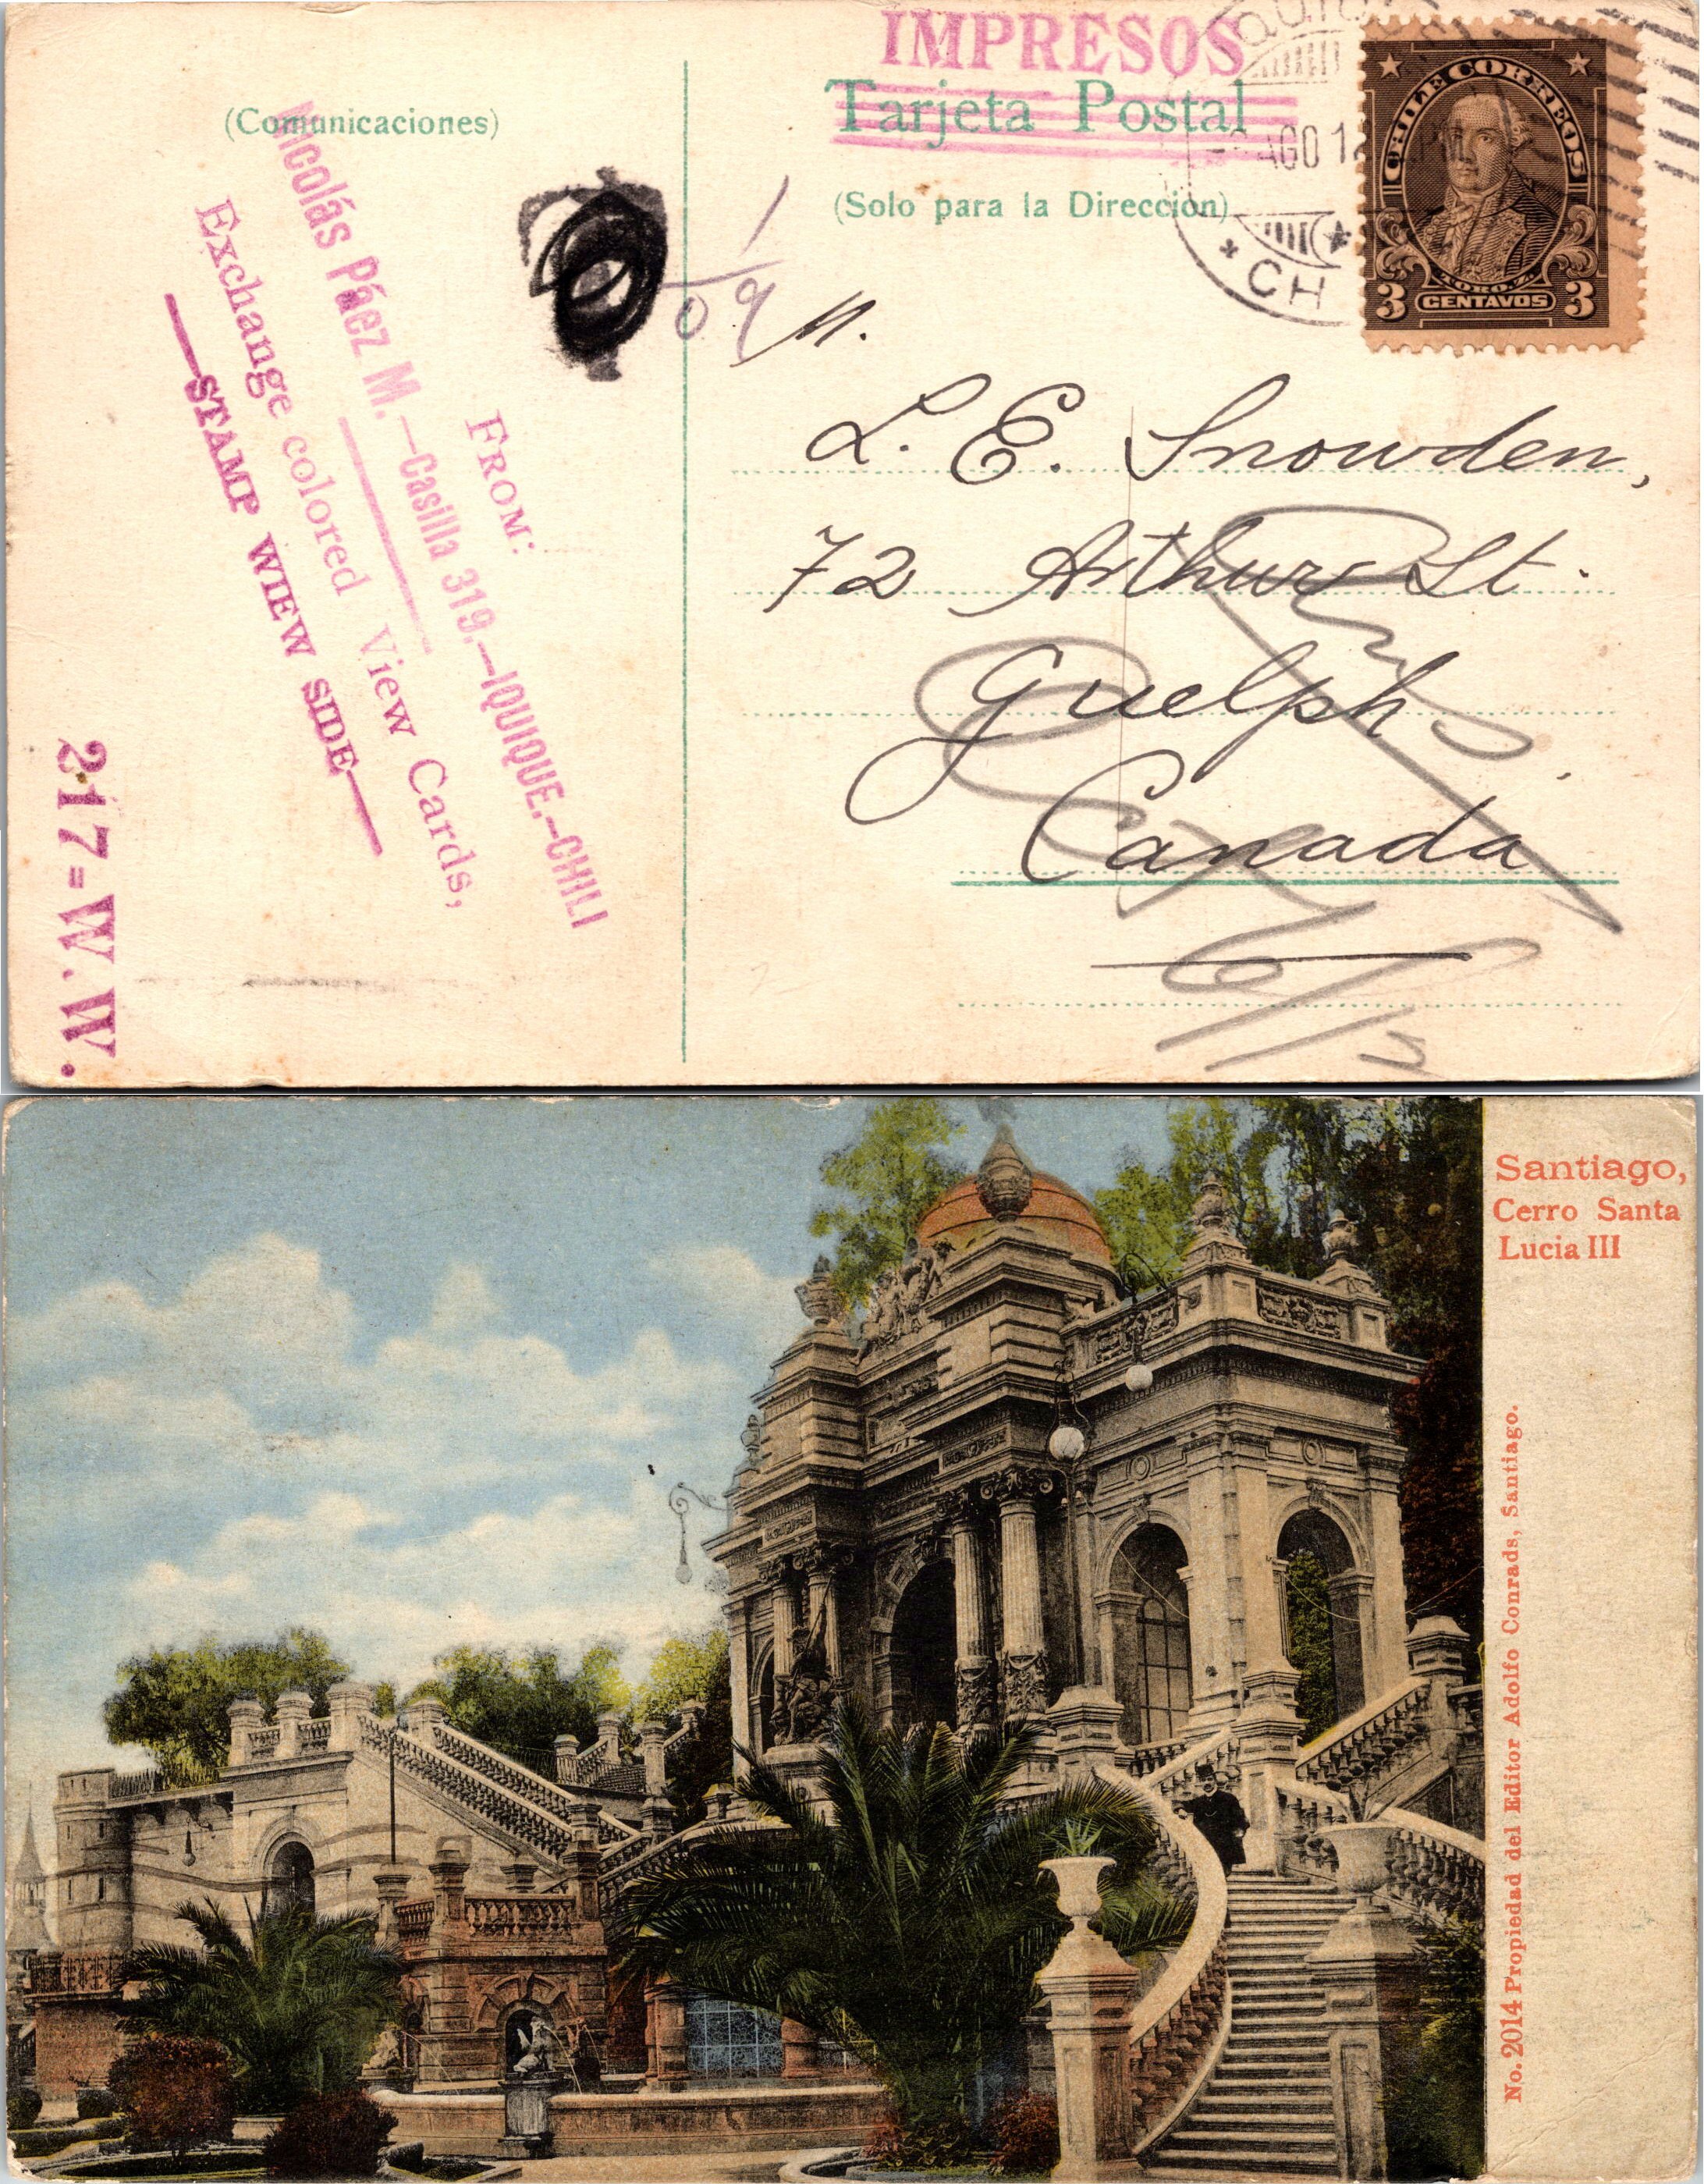 (Comunicaciones)
IMPRESOS
Tarjeta Postal
(Solo para la Dirección)
AGO 12
CH
CHILE CORREOS
TORO Z.
3 CENTAVOS 3
FROM:
Nicolás Páez M.—Casilla 319.—IQUIQUE.—CHILI
Exchange colored View Cards,
—STAMP WIEW SIDE—
217=W.W.
1
09
M.
L. E. Snowden,
72 Arthur St.
Guelph.
Canada
Santiago,
Cerro Santa
Lucia III
No. 2014 Propiedad del Editor Adolfo Conrads, Santiago.